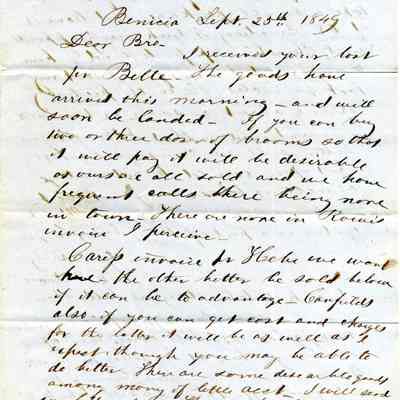 Benicia Sept. 25th 1849
Dear Bro-
I received your last
per Belle - The goods have
arrived this morning - and will
soon be landed - If you can buy
two or three doz of brooms so that
it will pay it will be desirable
as ours are all sold and we have
frequent calls there being none
in town - There are none in
invoice I perceive -
invoice pr Hebe we want
the other better be sold below
if it can be to advantage -
also if you can get cost and charges
for the latter it will be as well as I
expect though you may be able to
do better. There are some desirable goods
among mony of acct - I will send